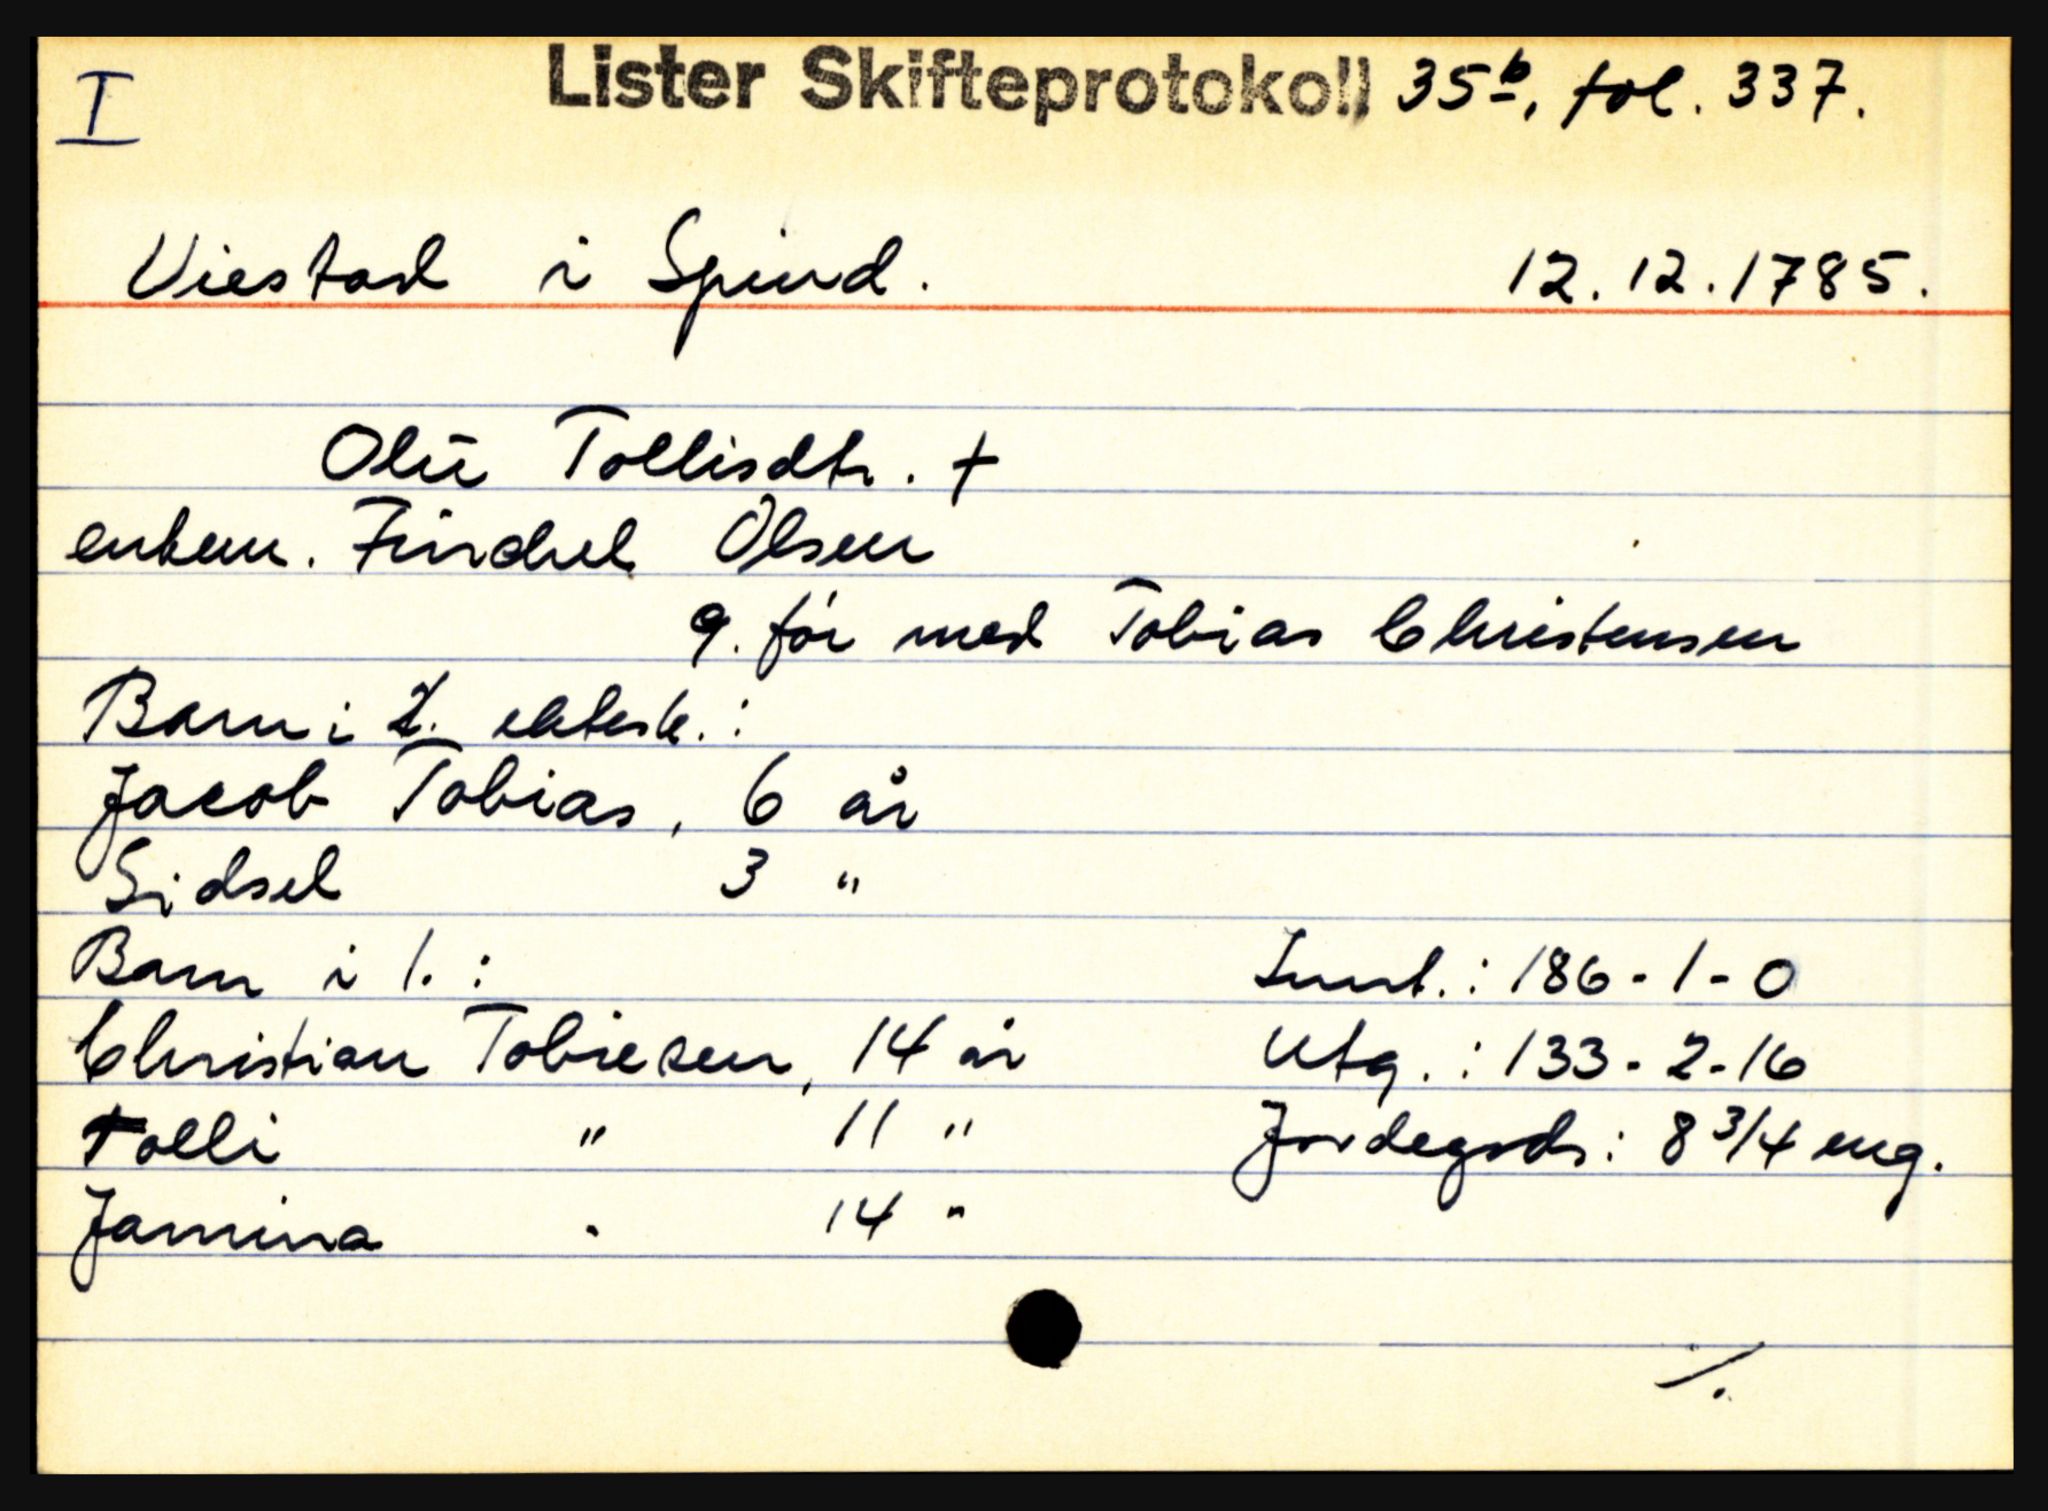 I
Lister Skifteprotokoll 35b, fol. 337.
Viestad i Spind. 12.12.1785.
Olu Tollisdtr. +
enkem. Findul Olsen
g. før med Tobias Christensen
Barn i 2. ektesk.:
Jacob Tobias, 6 år
Sidsel 3 "
Barn i 1.:
Christian Tobiesen, 14 år
Tolli " 11 "
Jamina " 14 "
Innt.: 186-1-0
Utg.: 133-2-16
Jordegods: 8 3/4 eng.
./.